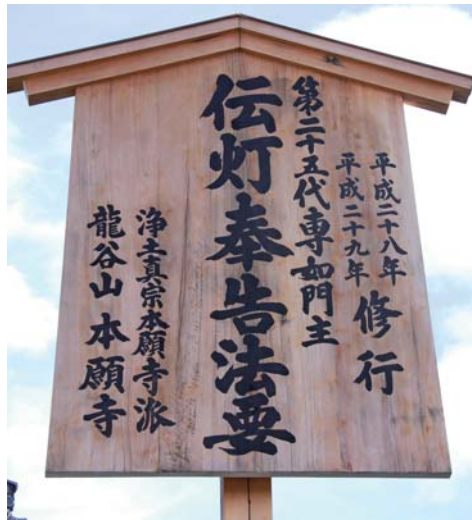 平成二十八年
平成二十九年
修行
第二十五代専如門主
伝灯奉告法要
浄土真宗本願寺派
龍谷山本願寺